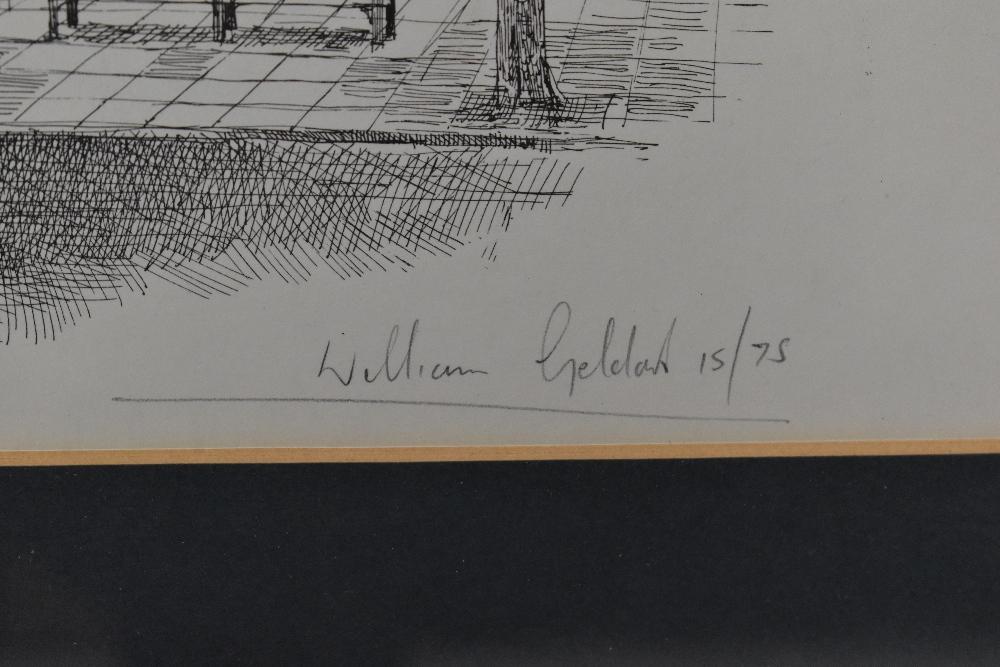 William Geldart 15/75